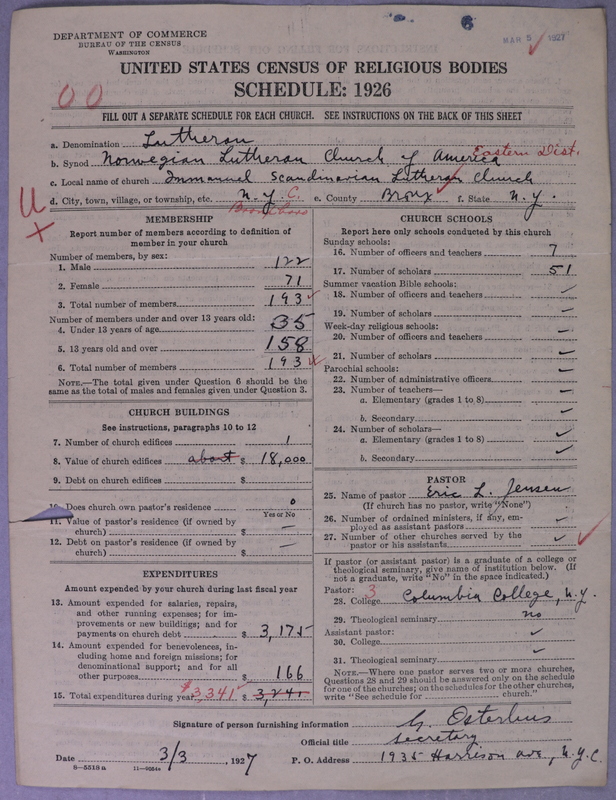 DEPARTMENT OF COMMERCE
BUREAU OF THE CENSUS
WASHINGTON
MAR 5 1927
UNITED STATES CENSUS OF RELIGIOUS BODIES
SCHEDULE: 1926
00
FILL OUT A SEPARATE SCHEDULE FOR EACH CHURCH. SEE INSTRUCTIONS ON THE BACK OF THIS SHEET
a. Denomination Lutheran
Eastern Dist.
b. Synod Norwegian Lutheran Church of America
c. Local name of church Immanuel Scandinavian Lutheran Church
d. City, town, village, or township, etc. N.Y.C. e. County Bronx f. State N.Y.
MEMBERSHIP
Report number of members according to definition of
member in your church
Number of members, by sex:
1. Male 122
2. Female 71
3. Total number of members 193
Number of members under and over 13 years old:
4. Under 13 years of age 35
5. 13 years old and over 158
6. Total number of members 193
NOTE.—The total given under Question 6 should be
same as the total of males and females given under Question 3.
CHURCH BUILDINGS
See instructions, paragraphs 10 to 12
7. Number of church edifices 1
8. Value of church edifices about $ 18,000
9. Debt on church edifices $
10. Does church own pastor's residence 0
Yes or No
11. Value of pastor's residence (if owned by
church) $ —
12. Debt on pastor's residence (if owned by
church) $ —
EXPENDITURES
Amount expended by your church during last fiscal year
13. Amount expended for salaries, repairs,
and other running expenses; for im-
provements or new buildings; and for
payments on church debt $ 3,175
14. Amount expended for benevolences, in-
cluding home and foreign missions; for
denominational support; and for all
other purposes $ 166
15. Total expenditures during year $3,341 $ 3,241
CHURCH SCHOOLS
Report here only schools conducted by this church
Sunday schools:
16. Number of officers and teachers 7
17. Number of scholars 51
Summer vacation Bible schools:
18. Number of officers and teachers
19. Number of scholars
Week-day religious schools:
20. Number of officers and teachers
21. Number of scholars
Parochial schools:
22. Number of administrative officers
23. Number of teachers—
a. Elementary (grades 1 to 8)
b. Secondary
24. Number of scholars—
a. Elementary (grades 1 to 8)
b. Secondary
PASTOR
25. Name of pastor Eric L. Jensen
(If church has no pastor, write "None")
26. Number of ordained ministers, if any, em-
ployed as assistant pastors
27. Number of other churches served by the
pastor or his assistants
If pastor (or assistant pastor) is a graduate of a college or
theological seminary, give name of institution below. (If
not a graduate, write "No" in the space indicated.)
Pastor: 3
28. College Columbia College, N.Y.
29. Theological seminary no
Assistant pastor:
30. College
31. Theological seminary
NOTE.—Where one pastor serves two or more churches,
Questions 28 and 29 should be answered only on the schedule
for one of the churches; on the schedules for the other churches,
write "See schedule for church."
Signature of person furnishing information G. Osterhus
Official title Secretary
Date 3/3, 1927 P. O. Address 1935 Harrison ave., N.Y.C.
8—5518a 11—9054a